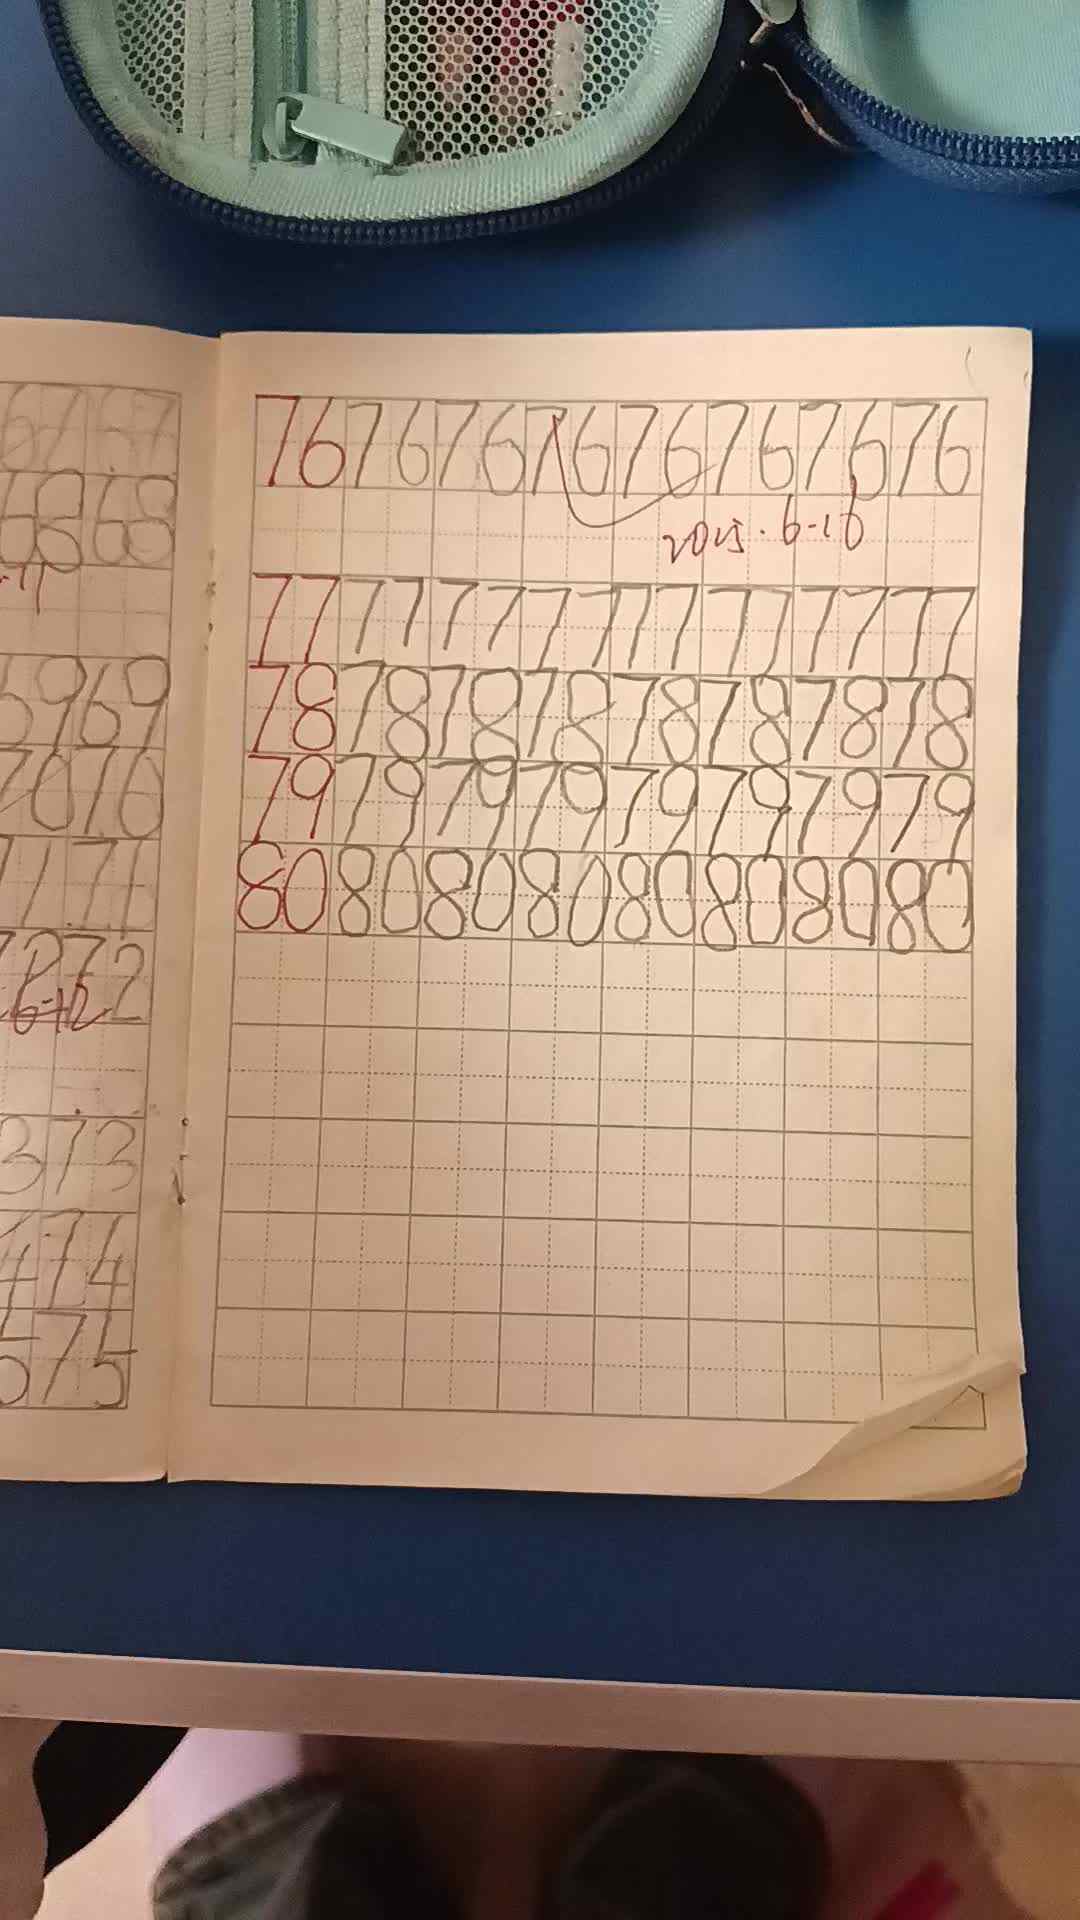 6767
6868
6969
7070
7171
7272
6-12
7373
474
575
76 76 76 76 76 76 76 76
2025.6-16
77 77 77 77 77 77 77 77
78 78 78 78 78 78 78 78
79 79 79 79 79 79 79 79
80 80 80 80 80 80 80 80